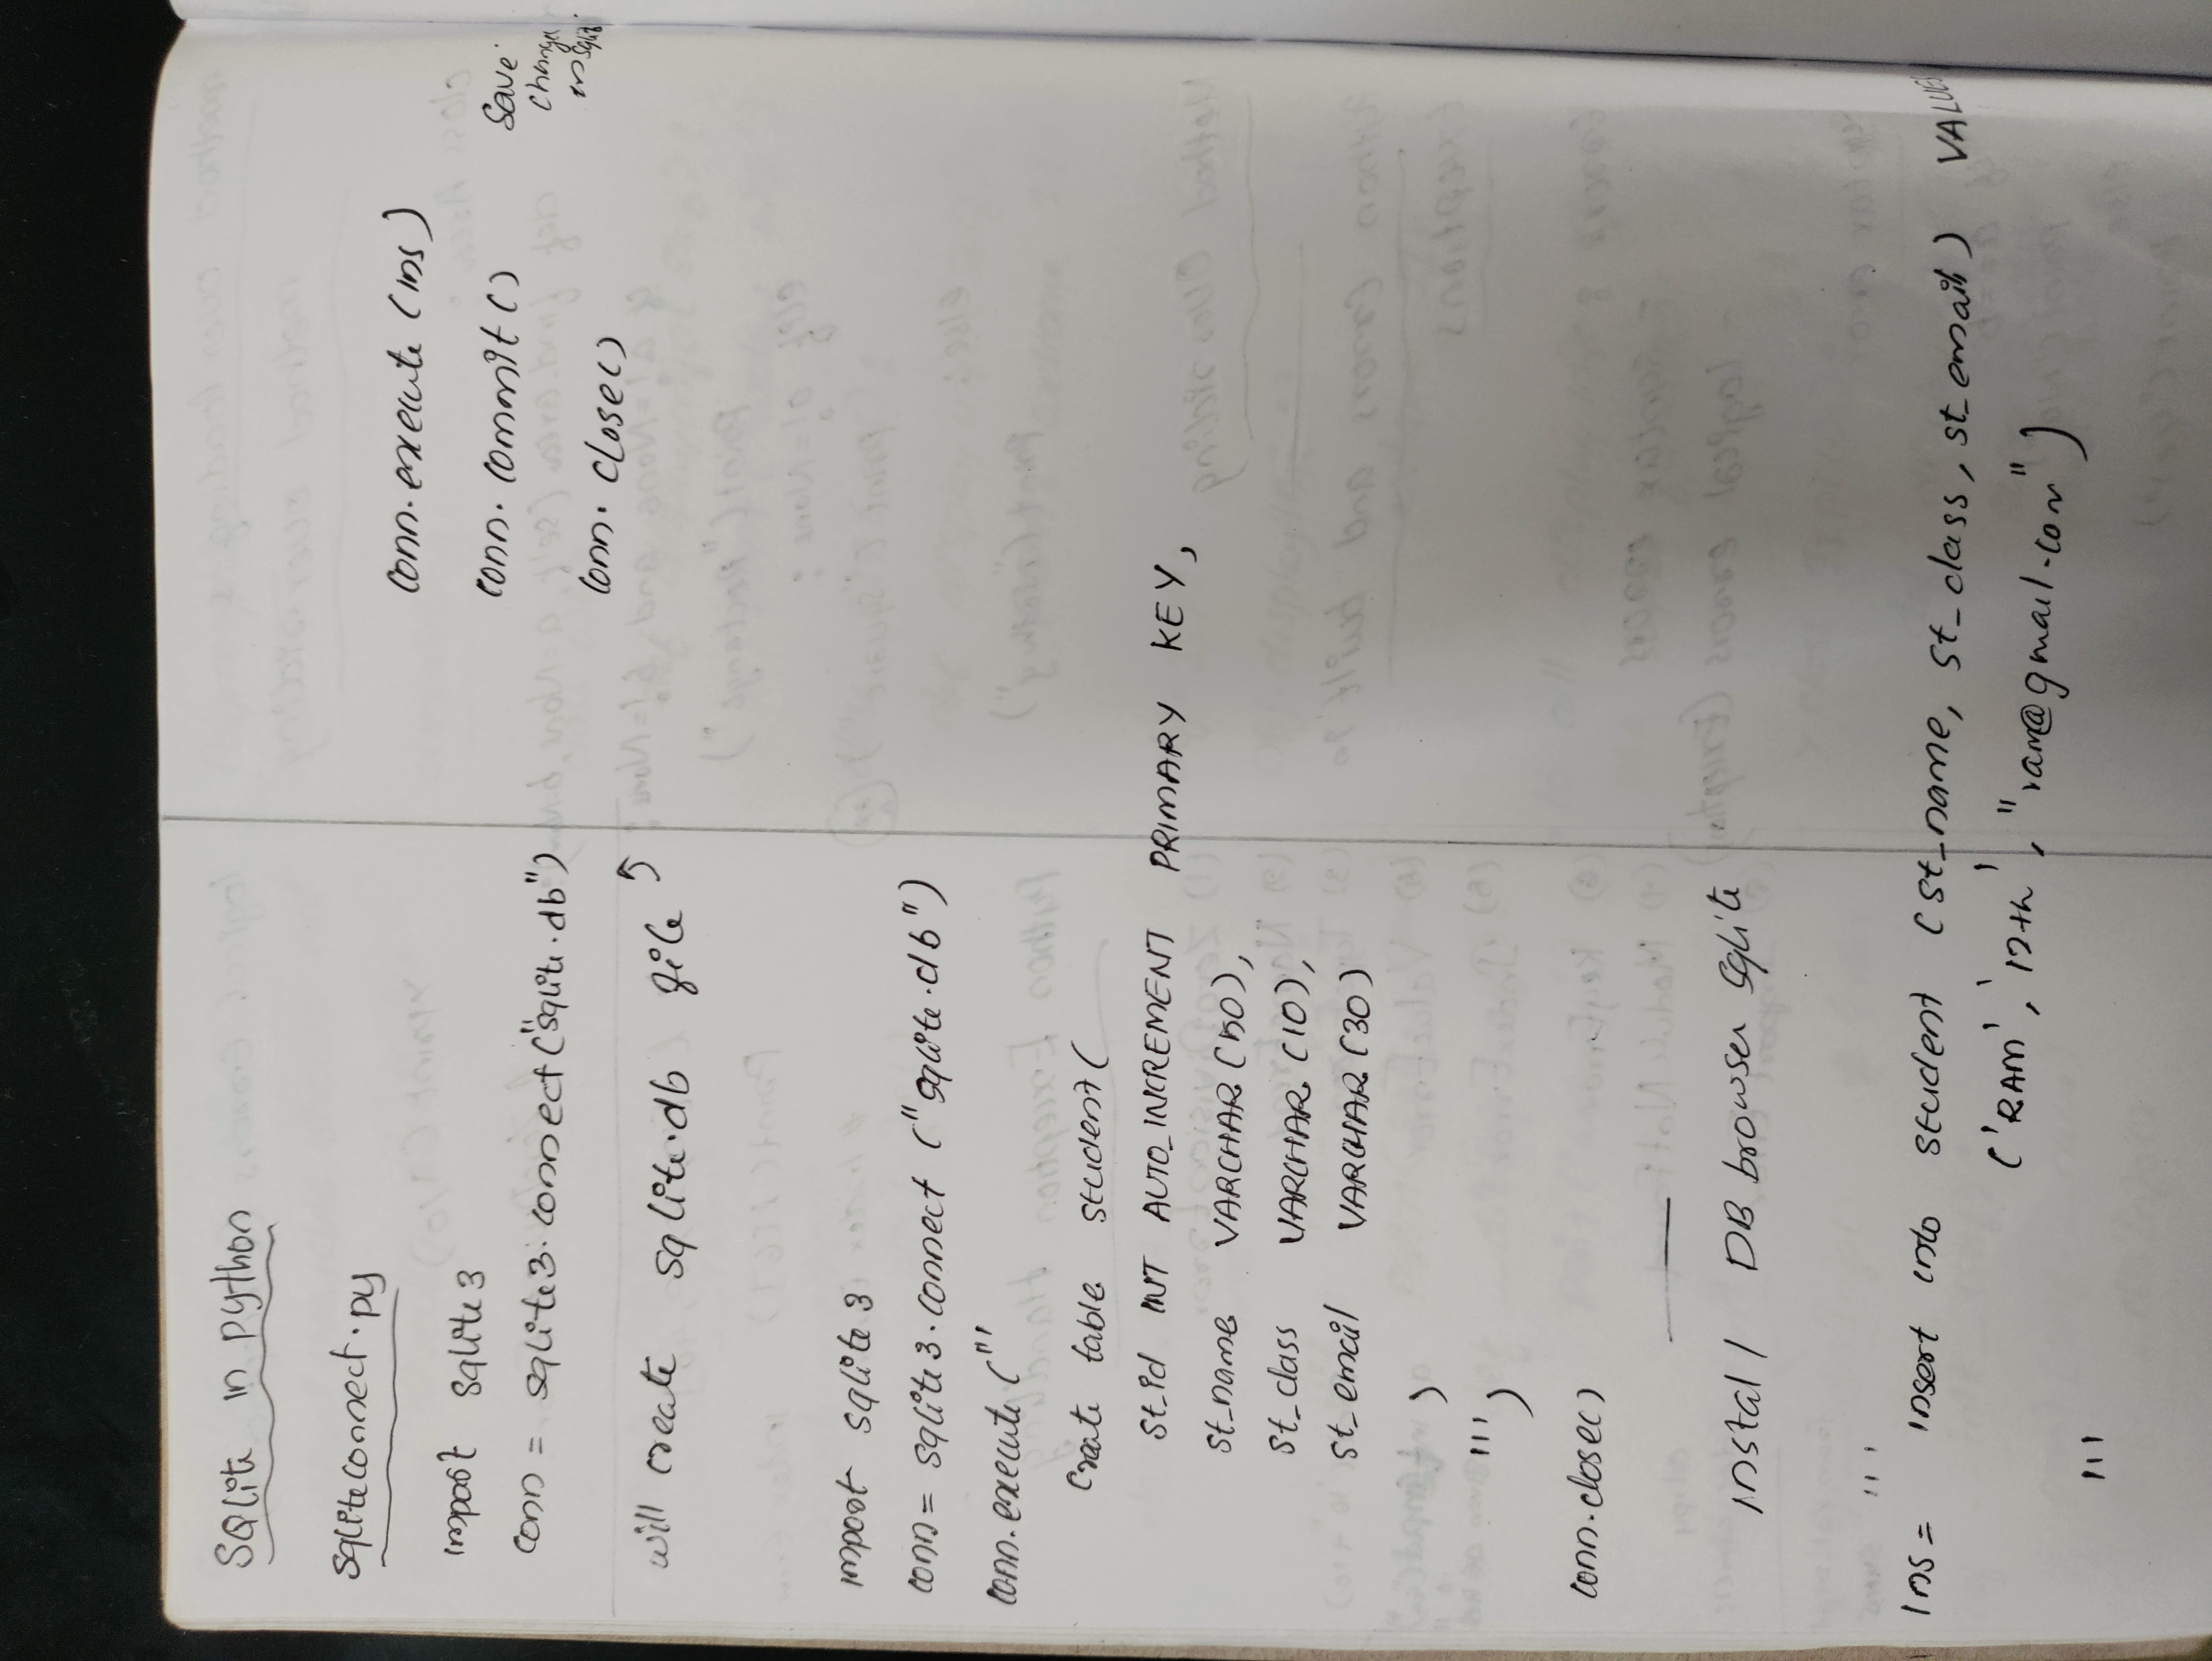 SQlite in python
sqliteconnect.py
import sqlite3
conn = sqlite3.connect("sqlite.db")
will create sqlite.db file
import sqlite3
conn = sqlite3.connect ("sqlite.db")
conn.execute ('''
Create table student(
st_id INT AUTO_INCREMENT PRIMARY KEY,
st_name VARCHAR (50),
st_class VARCHAR (10),
st_email VARCHAR (30)
)
''')
conn.close()
install DB browser sqlite
'''
ins = insert into student (st_name, st_class, st_email) VALUES
('RAM', '12th', "ram@gmail.com")
'''
conn.execute (ins)
conn.commit()
conn.close()
Save
changes
in sqlite